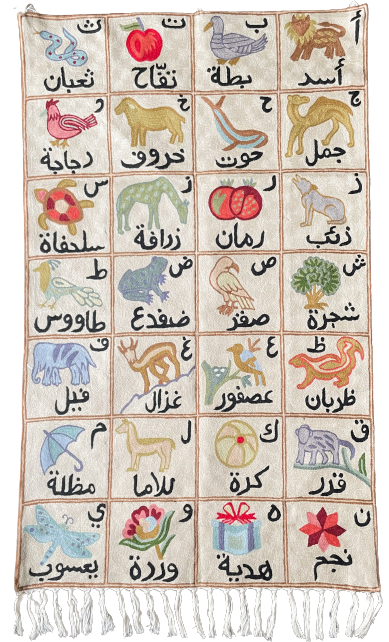 أ
أسد
ب
بطة
ت
تفّاح
ث
ثعبان
ج
جمل
ح
حوت
خ
خروف
د
دجاجة
ذ
ذئب
ر
رمان
ز
زرافة
س
سلحفاة
ش
شجرة
ص
صقر
ض
ضفدع
ط
طاووس
ظ
ظربان
ع
عصفور
غ
غزال
ف
فيل
ق
قرد
ك
كرة
ل
للاما
م
مظلة
ن
نجم
ه
هدية
و
وردة
ي
يعسوب